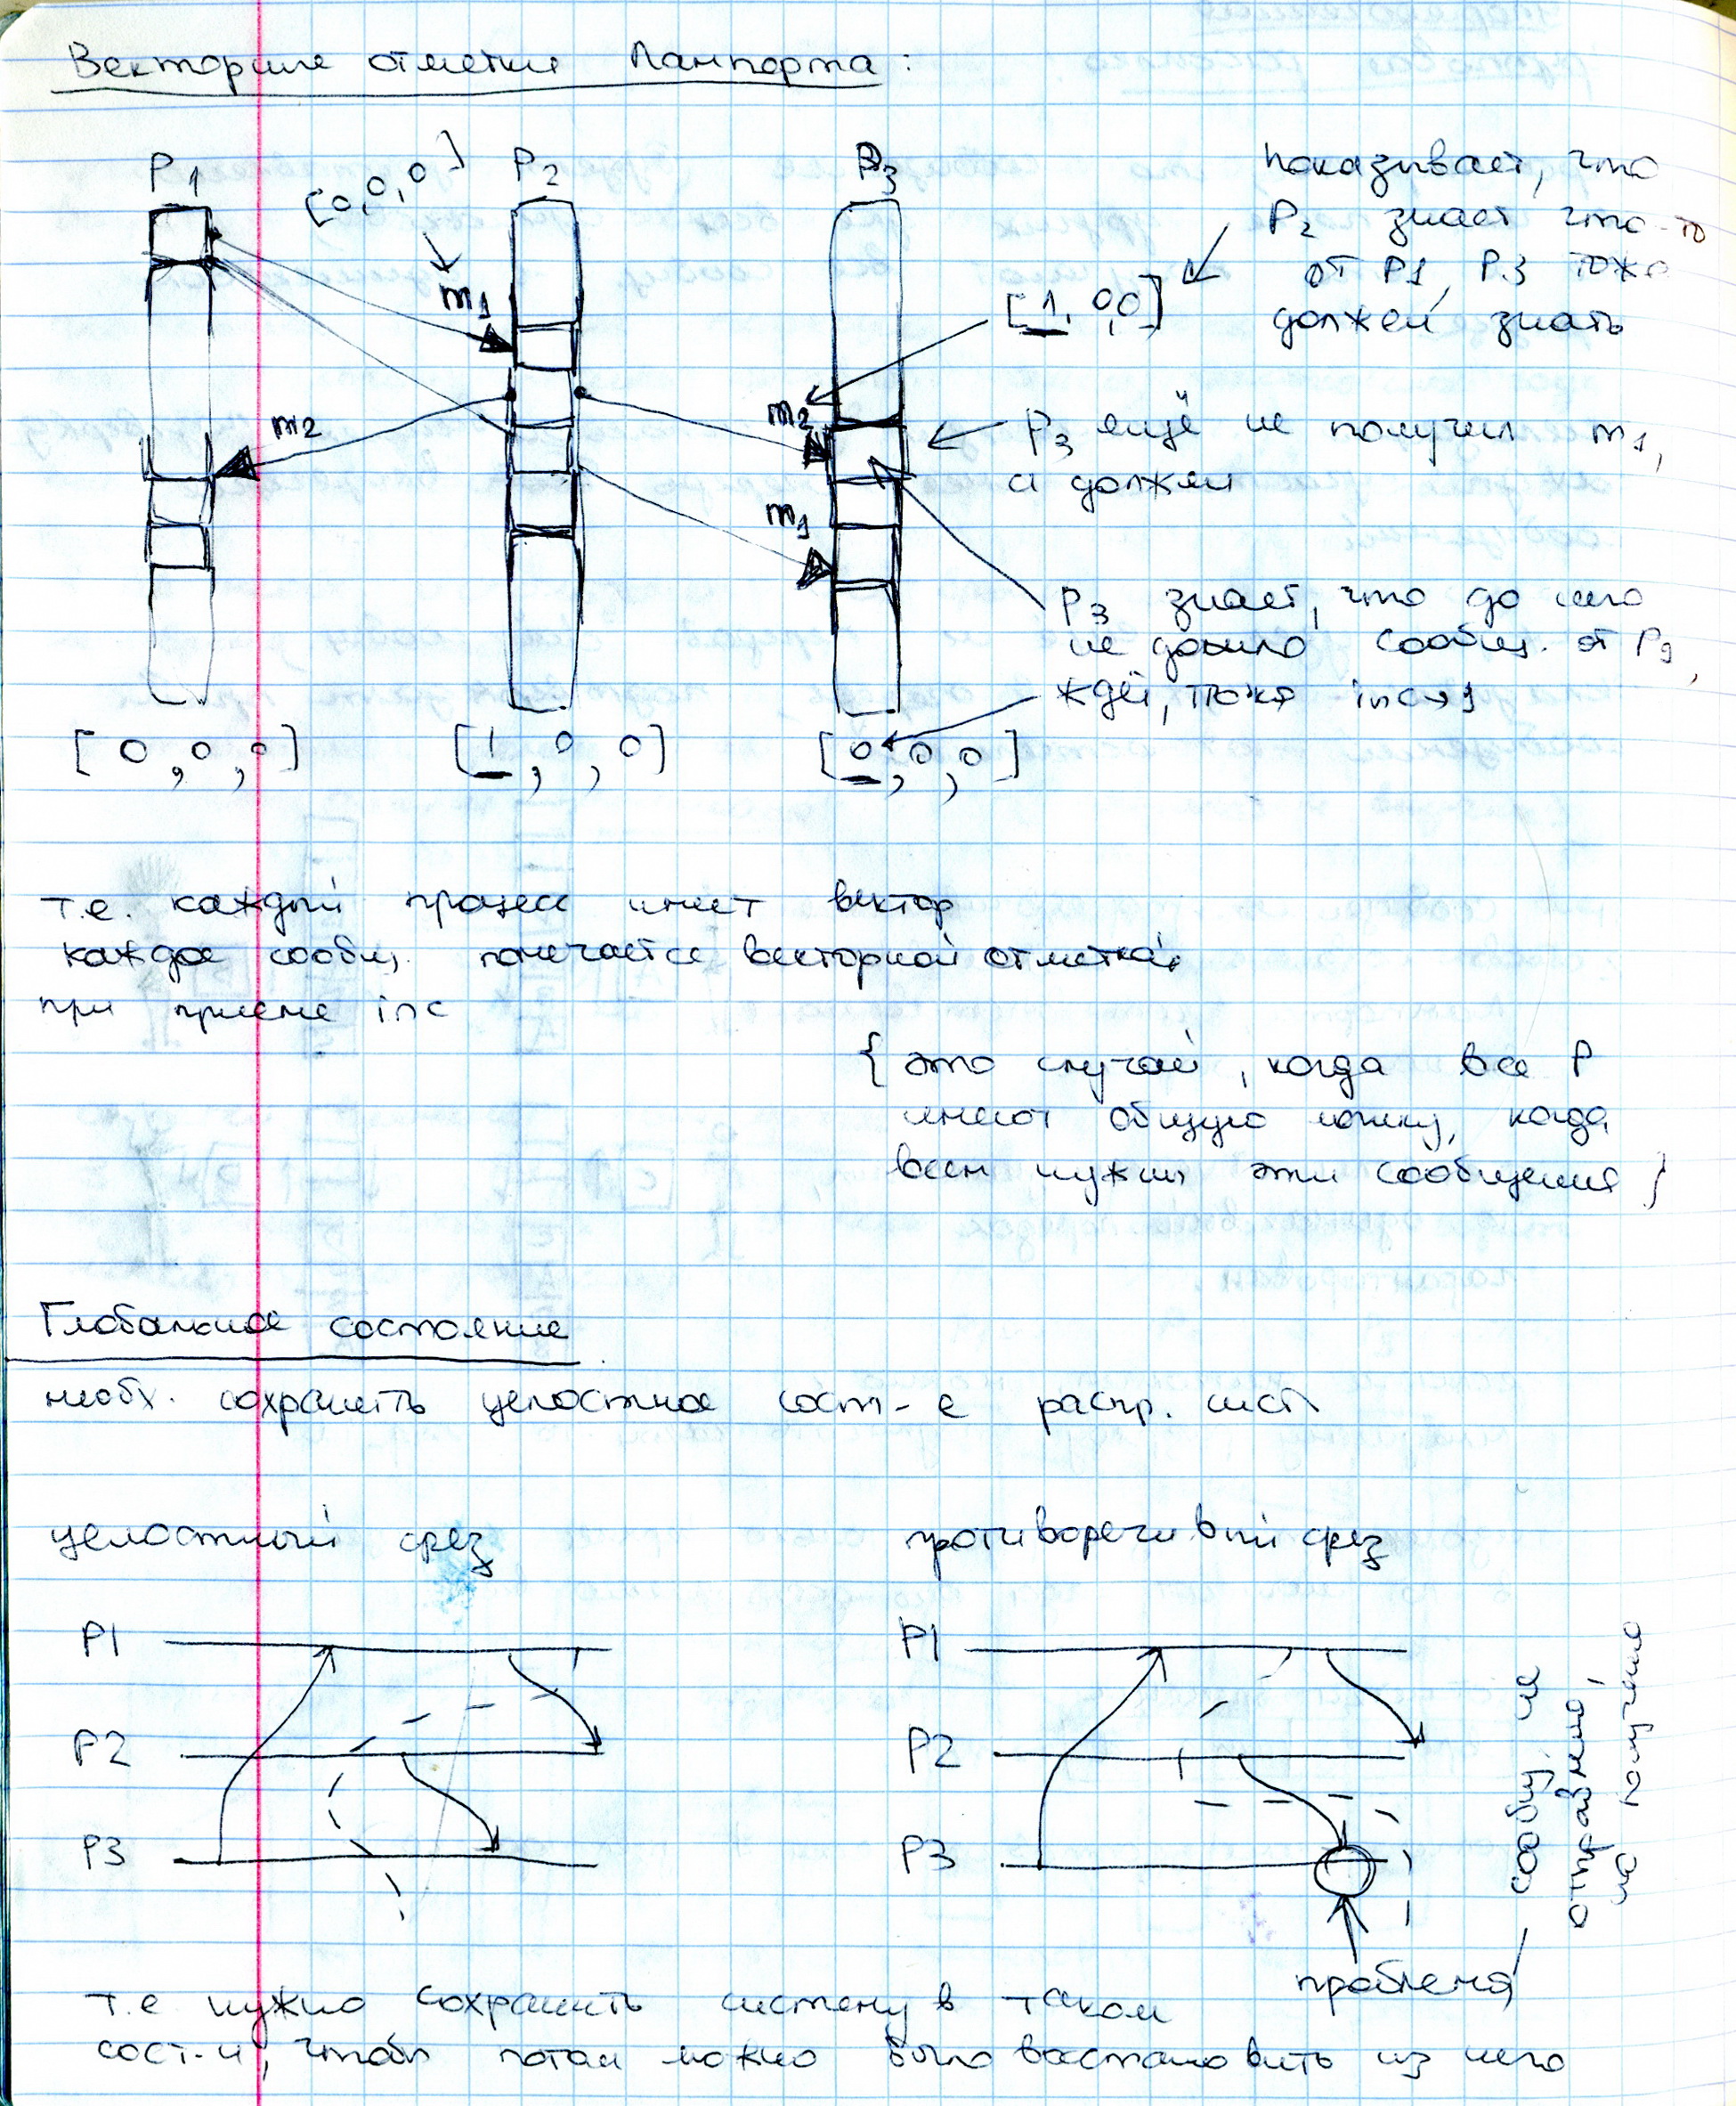 Векторные отметки Лампорта:
P1 [0,0,0] P2 P3
показывает, что
P2 знает что-то
от P1, P3 тоже
должен знать
[1,0,0]
m1
m2
m2
P3 ещё не получил m1,
а должен
m1
P3 знает, что до него
не дошло сообщ. от P1,
ждёт, пока inc→1
[0,0,0] [1,0,0] [0,0,0]
т.е. каждый процесс имеет вектор
каждое сообщ. помечается векторной отметкой
при приеме inc
{ это случай, когда все P
имеют общую логику, когда
всем нужны эти сообщения }
Глобальное состояние
необх. сохранить целостное сост-е распр. сист
целостный срез
противоречивый срез
P1
P2
P3
P1
P2
P3
сообщ. не
отправлено,
но получено
проблема
т.е нужно сохранить систему в таком
сост-и, чтобы потом можно было востановить из него